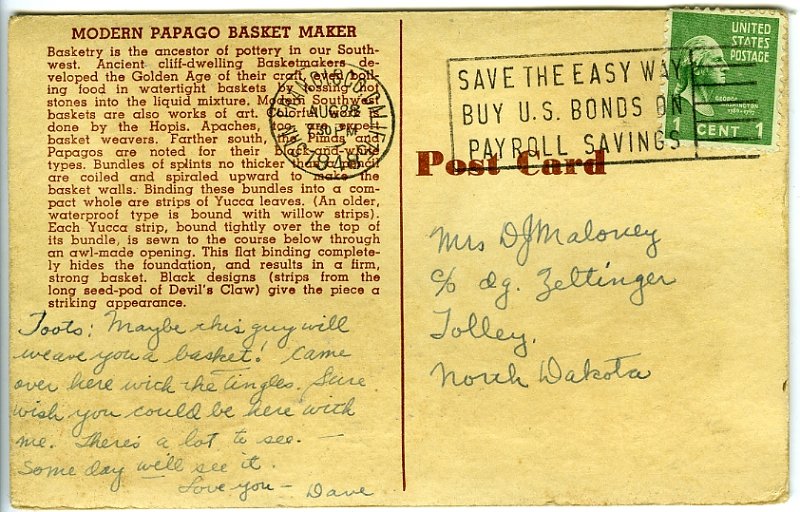 MODERN PAPAGO BASKET MAKER
Basketry is the ancestor of pottery in our South-
west. Ancient cliff-dwelling Basketmakers de-
veloped the Golden Age of their craft, even boil-
ing food in watertight baskets by tossing hot
stones into the liquid mixture. Modern Southwest
baskets are also works of art. Colorful work is
done by the Hopis. Apaches, too, are expert
basket weavers. Farther south, the Pimas and
Papagos are noted for their black-and-white
types. Bundles of splints no thicker than a pencil
are coiled and spiraled upward to make the
basket walls. Binding these bundles into a com-
pact whole are strips of Yucca leaves. (An older,
waterproof type is bound with willow strips).
Each Yucca strip, bound tightly over the top of
its bundle, is sewn to the course below through
an awl-made opening. This flat binding complete-
ly hides the foundation, and results in a firm,
strong basket. Black designs (strips from the
long seed-pod of Devil's Claw) give the piece a
striking appearance.
Toots: Maybe this guy will
weave you a basket! Came
over here with the Tingles. Sure
wish you could be here with
me. There's a lot to see. —
Some day we'll see it.
Love you — Dave
AUG 28
7 30 PM
1948
SAVE THE EASY WAY
BUY U.S. BONDS ON
PAYROLL SAVINGS
UNITED
STATES
POSTAGE
GEORGE
WASHINGTON
1 CENT 1
Post Card
Mrs DJ Maloney
c/o dg. Zeltinger
Tolley,
North Dakota